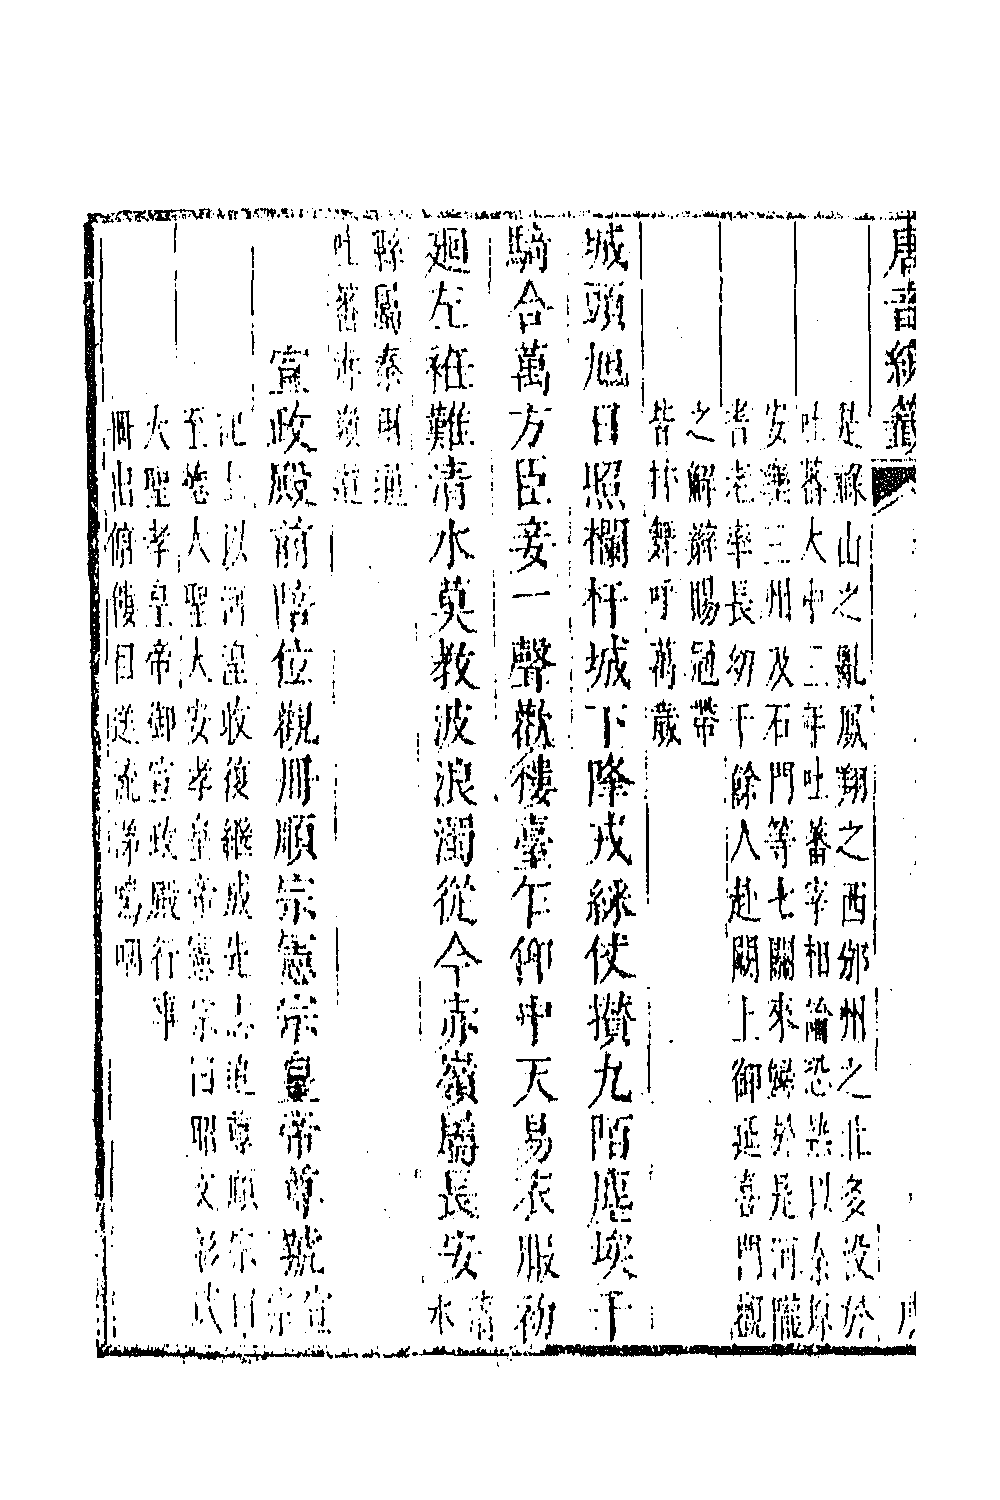 唐音統籖
是祿山之亂鳳翔之西邠州之北多没於
吐蕃大中三年吐蕃宰相論恐熱以秦原
安樂三州及石門等七關來歸於是河隴
耆老率長幼千餘人赴闕上御延喜門觀
之解辮賜冠帶
皆抃舞呼萬歲
城頭旭日照欄杆城下降戎綵仗攢九陌塵埃千
騎合萬方臣妾一聲歡樓臺乍仰中天易衣服初
廻左袵難清水莫教波浪濁從今赤嶺屬長安清
水
縣屬秦州
吐蕃赤嶺
宣政殿前陪位觀冊順宗憲宗皇帝尊號宣
宗
記上以河湟收復繼成先志追尊順宗曰
至德大聖大安孝皇帝憲宗曰昭文彰武
大聖孝皇帝御宣政殿行事
冊出俯僂目送流涕嗚咽